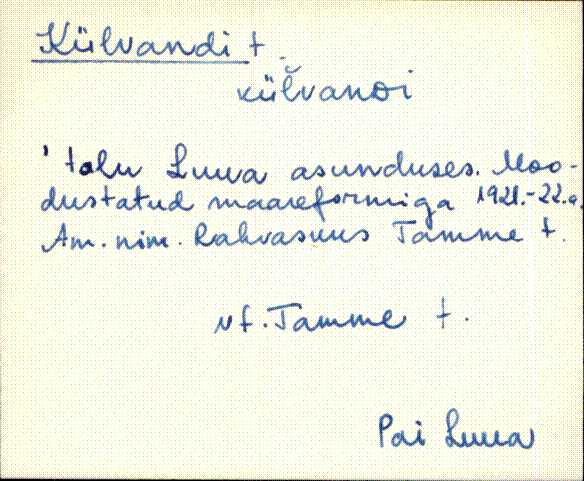 Külvandi t.
külvandi
' talu Luua asunduses. Moo-
dustatud maareformiga 1921.-22.a.
Am. nim. Rahvasuus Tamme t.
vt. Tamme t.
Pai Luua